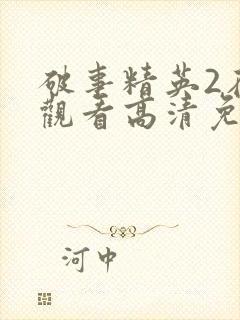 破事精英2
觀看高清免
河中